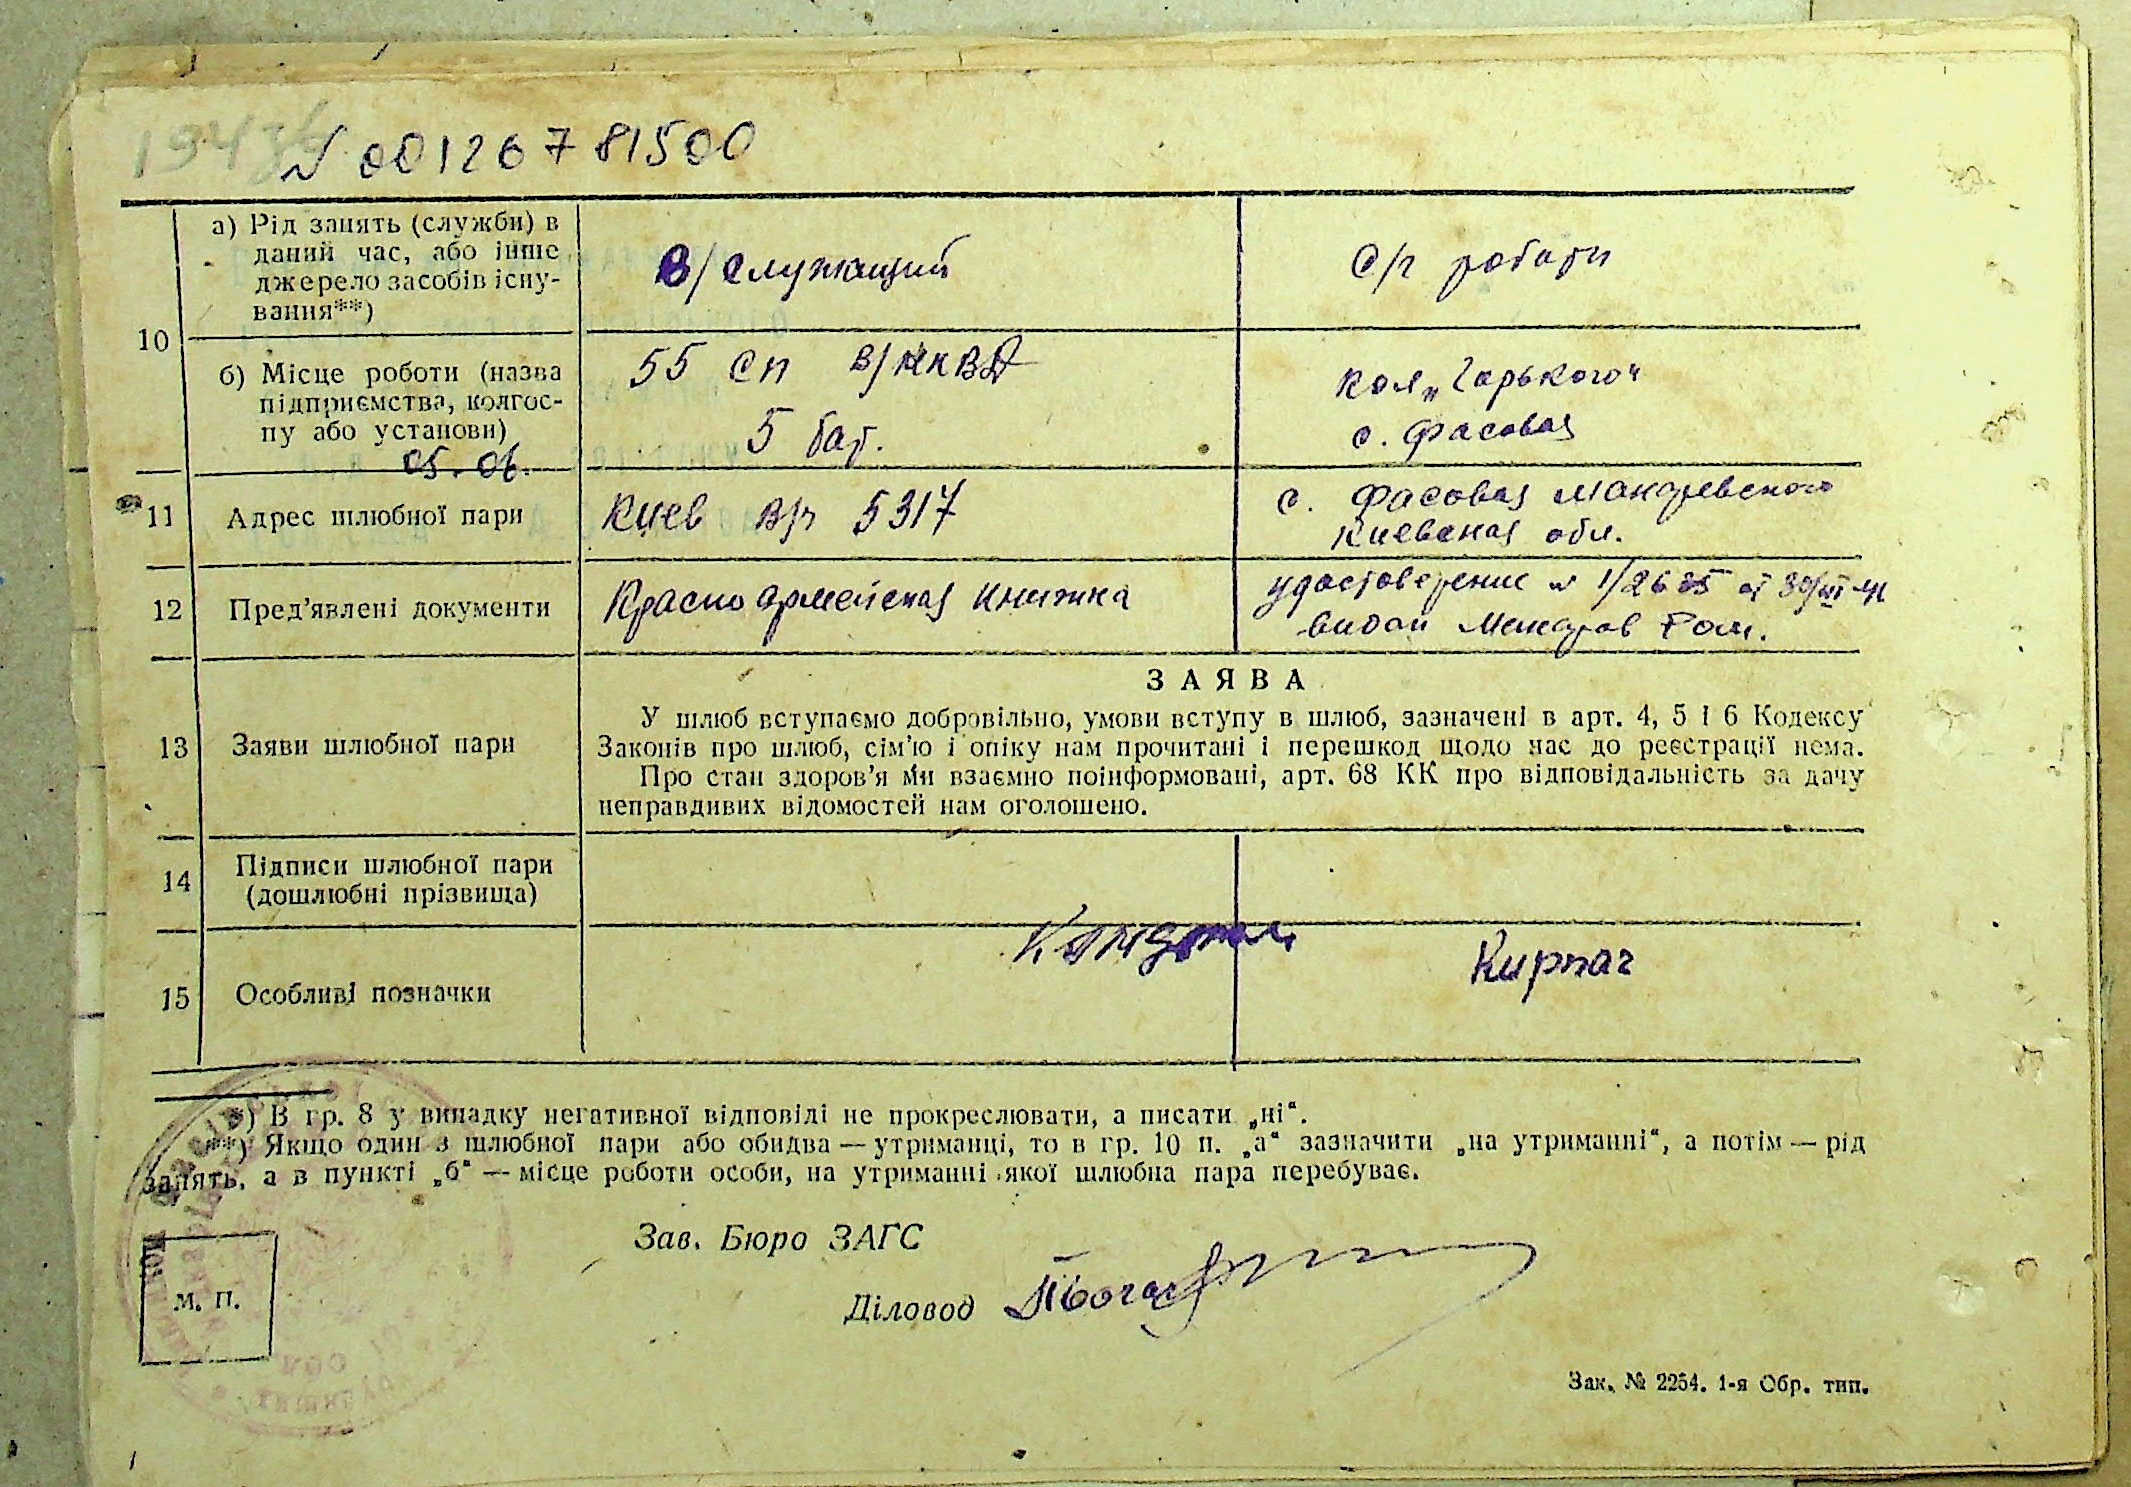 N 00126781500
а) Рід занять (служби) в
даний час, або інше
джерело засобів існу-
вання**)
В/служащий
С/г роботи
10
б) Місце роботи (назва
підприємства, колгос-
пу або установи)
55 сп В/НКВД
5 бат.
кол „Горького“
с. Фасовая
05.06.
11
Адрес шлюбної пари
Киев в/ч 5317
с. Фасовая Макаревского
Киевская обл.
12
Пред’явлені документи
Красноармейская книжка
удостоверение N
видан Макаров
13
Заяви шлюбної пари
ЗАЯВА
У шлюб вступаємо добровільно, умови вступу в шлюб, зазначені в арт. 4, 5 і 6 Кодексу
Законів про шлюб, сім’ю і опіку нам прочитані і перешкод щодо нас до реєстрації нема.
Про стан здоров’я ми взаємно поінформовані, арт. 68 КК про відповідальність за дачу
неправдивих відомостей нам оголошено.
14
Підписи шлюбної пари
(дошлюбні прізвища)
15
Особливі позначки
Кирпач
*) В гр. 8 у випадку негативної відповіді не прокреслювати, а писати „ні“.
**) Якщо один з шлюбної пари або обидва — утриманці, то в гр. 10 п. „а“ зазначити „на утриманні“, а потім — рід
занять, а в пункті „б“ — місце роботи особи, на утриманні якої шлюбна пара перебуває.
Зав. Бюро ЗАГС
М. П.
Діловод
Зак. № 2254. 1-я Обр. тип.